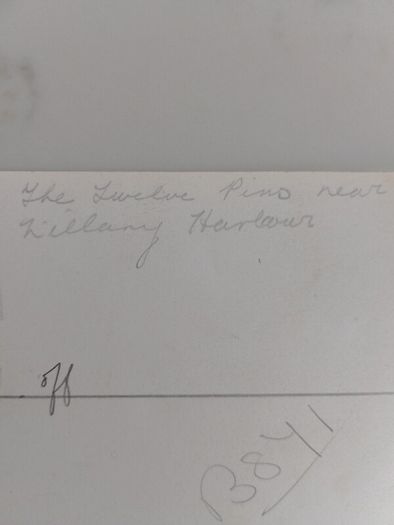 The Twelve Pins near
Killary Harbour
off
B841